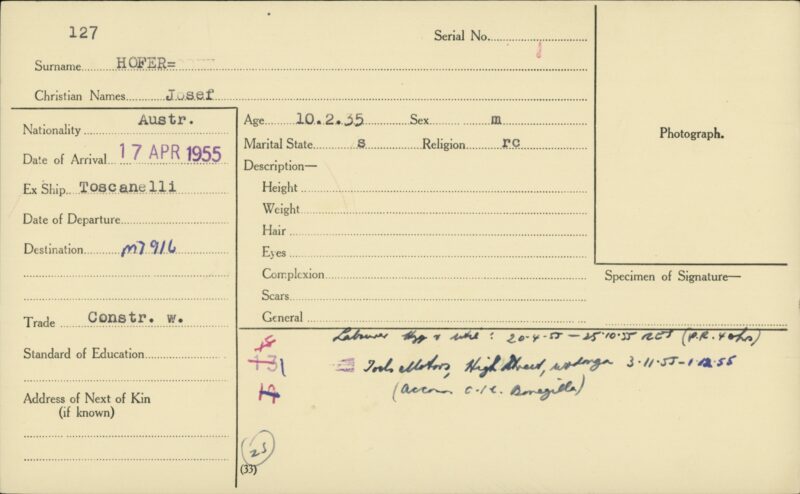 127
Serial No.
Surname HOFER=
Christian Names Josef
Nationality Austr.
Date of Arrival 17 APR 1955
Ex Ship Toscanelli
Date of Departure
Destination M7916
Trade Constr. w.
Standard of Education
Address of Next of Kin
(if known)
Age 10.2.35 Sex m
Marital State s Religion rc
Description—
Height
Weight
Hair
Eyes
Complexion
Scars
General
Photograph.
Specimen of Signature—
Labourer : 20-4-55 - 25-10-55 RES (P.R. 40hrs)
131 Motors, High Street, Wodonga 3-11-55 - 1-12-55
14
(Accom c.i.c. Bonegilla)
25
(33)